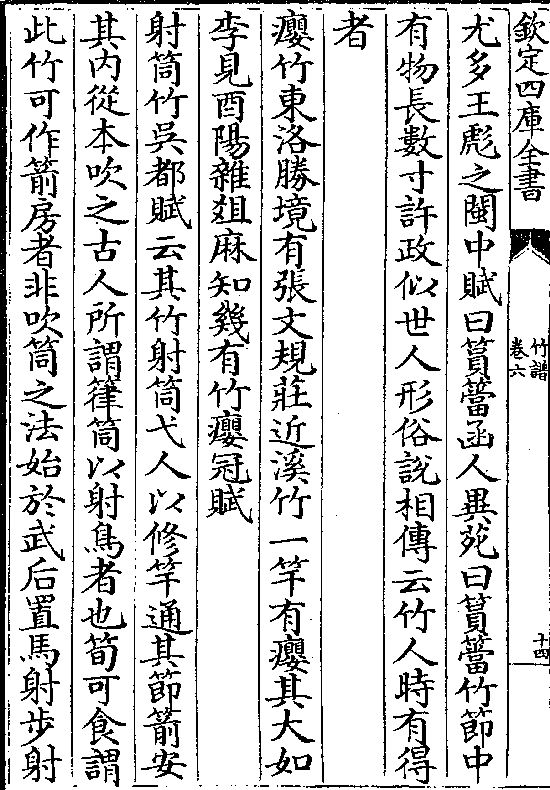 欽定四庫全書
竹譜
卷六
十四
尤多王彪之閩中賦曰篔簹函人異苑曰篔簹竹節中
有物長數寸許政似世人形俗說相傳云竹人時有得
者
癭竹東洛勝境有張文規莊近溪竹一竿有癭其大如
李見酉陽雜爼麻知幾有竹癭冠賦
射筒竹吳都賦云其竹射筒弋人以修竿通其節箭安
其内從本吹之古人所謂箻筒以射鳥者也筍可食謂
此竹可作箭房者非吹筒之法始於武后置馬射步射